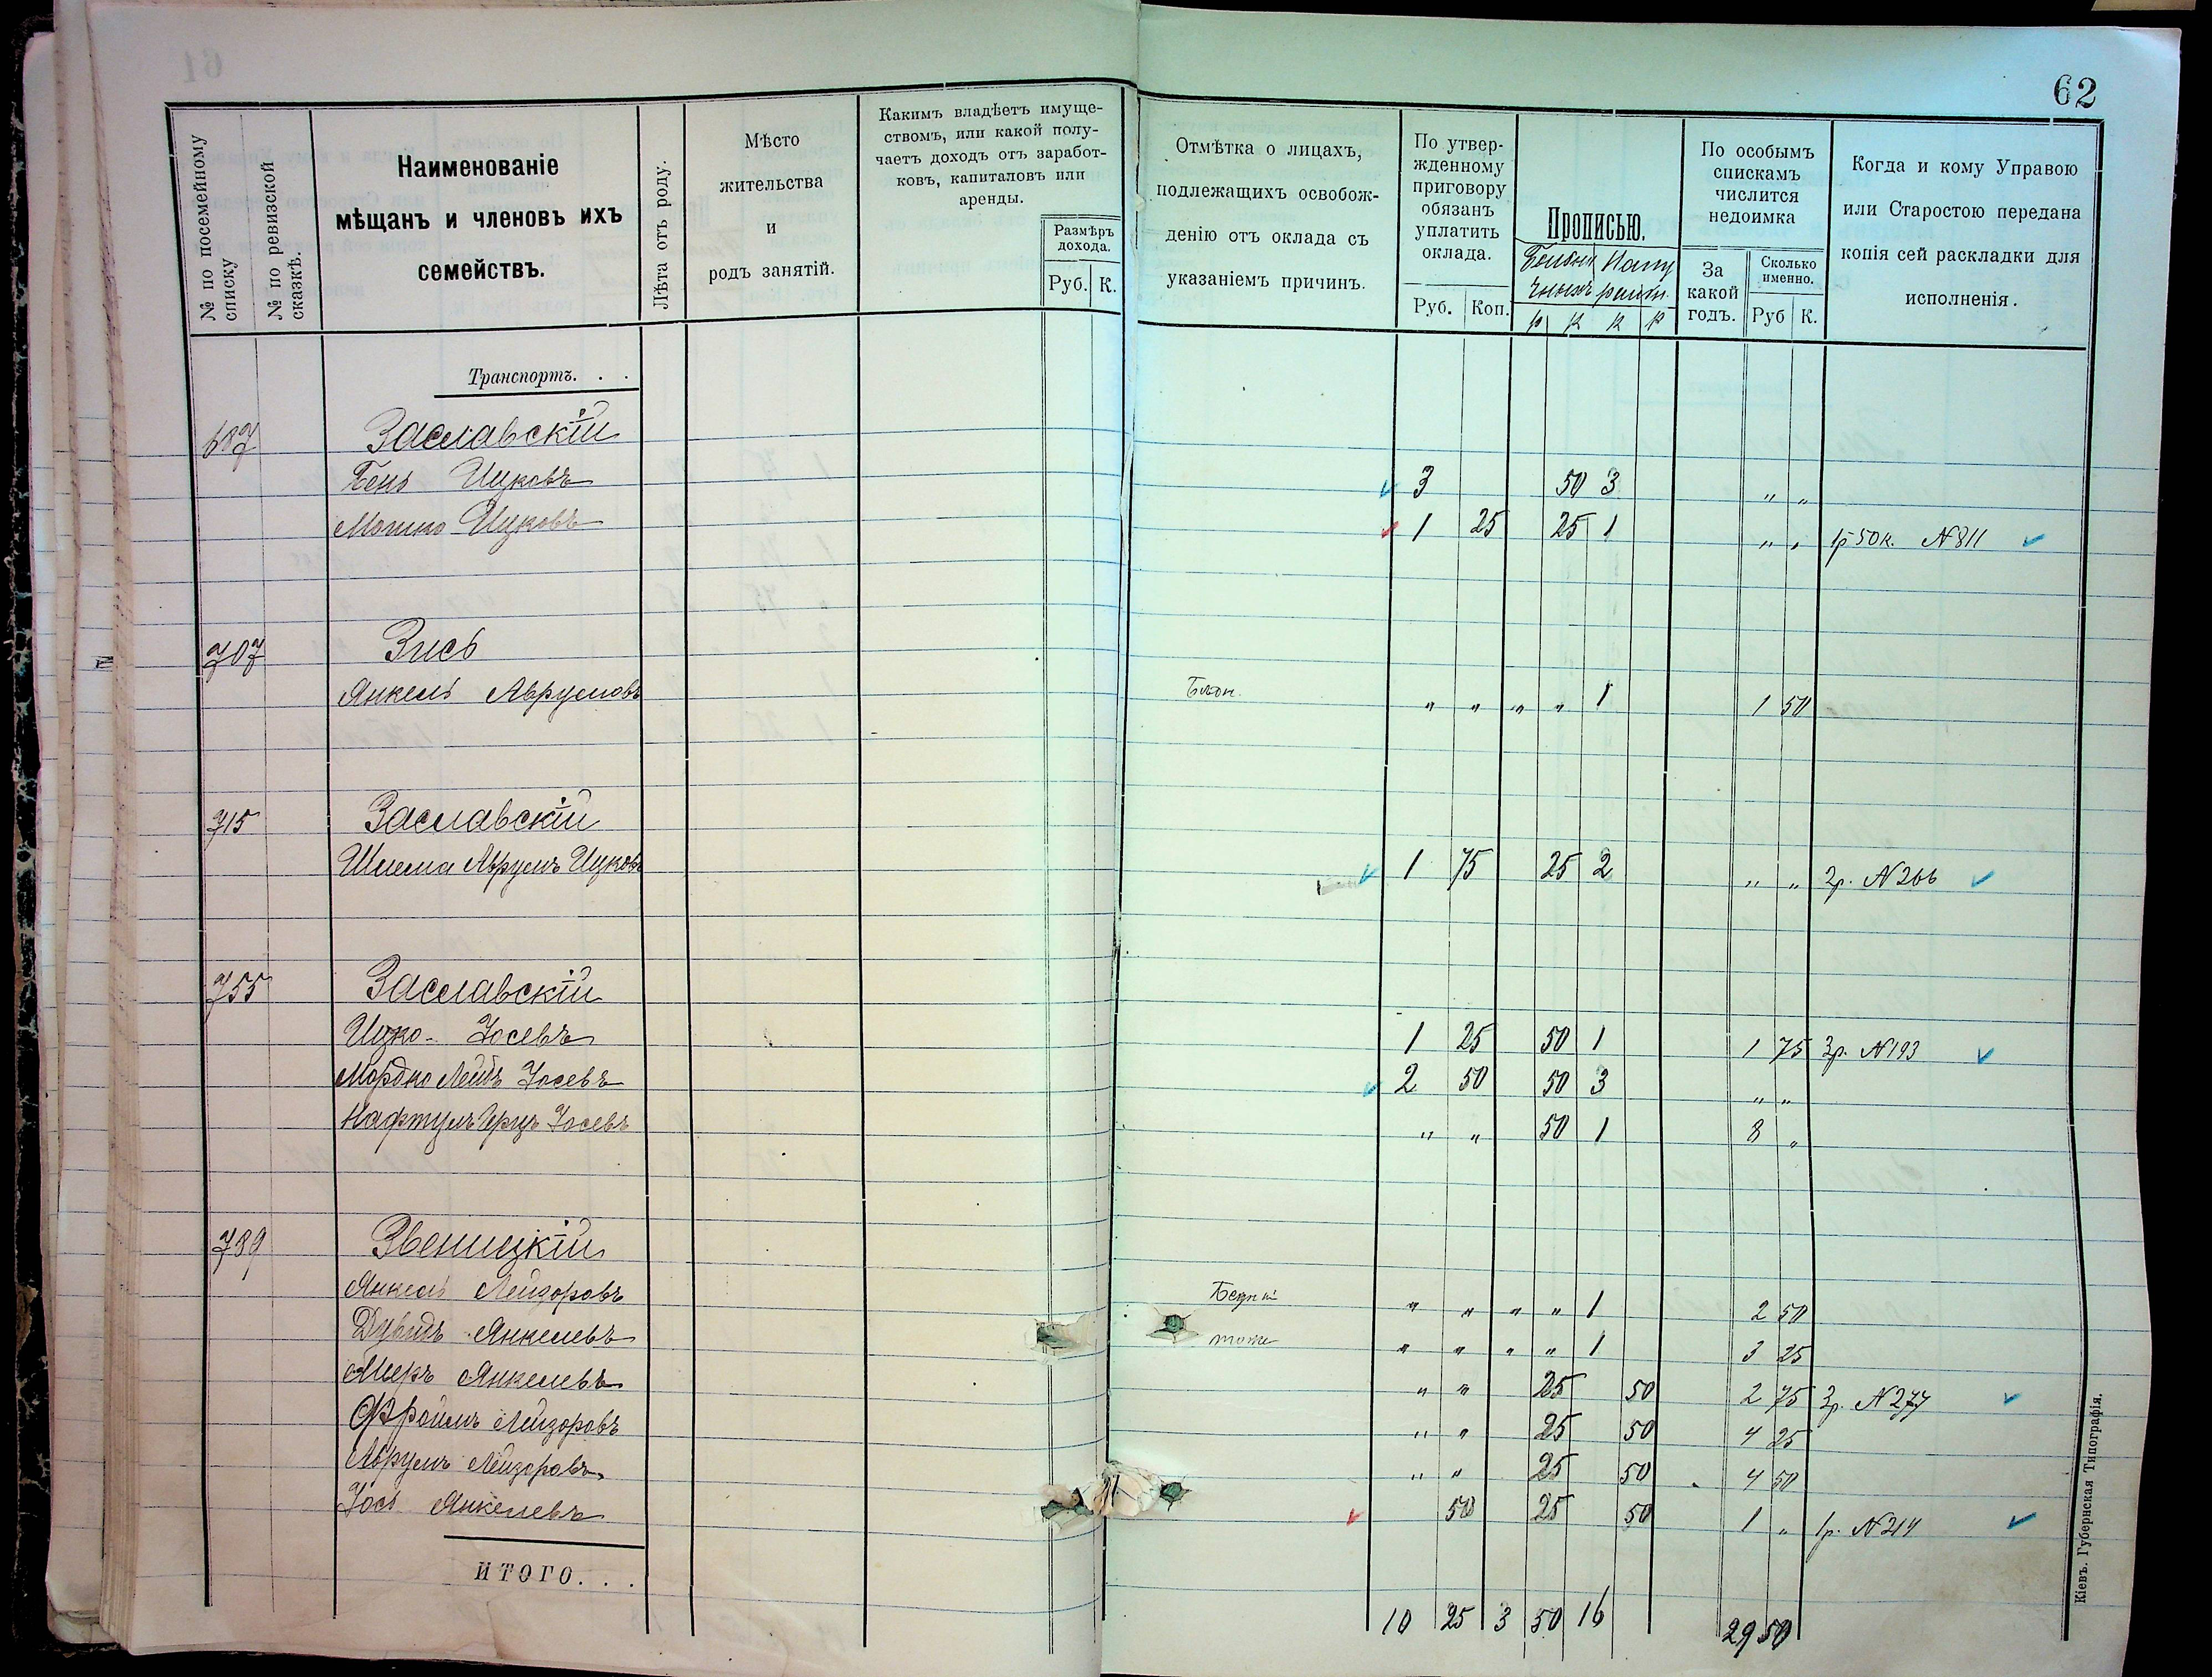 62
№ по посемейному списку
№ по ревизской сказкѣ.
Наименованіе
мѣщанъ и членовъ ихъ
семействъ.
Лѣта отъ роду.
Мѣсто
жительства
и
родъ занятій.
Какимъ владѣетъ имуще-
ствомъ, или какой полу-
чаетъ доходъ отъ заработ-
ковъ, капиталовъ или
аренды.
Размѣръ
дохода.
Руб. К.
Отмѣтка о лицахъ,
подлежащихъ освобож-
денію отъ оклада съ
указаніемъ причинъ.
По утвер-
жденному
приговору
обязанъ
уплатить
оклада.
Руб. Коп.
Прописью.
р к к р
По особымъ
спискамъ
числится
недоимка
За
какой
годъ.
Сколько
именно.
Руб К.
Когда и кому Управою
или Старостою передана
копія сей раскладки для
исполненія.
Транспортъ. . .
687 Заславскій
Бень Ицковъ 3 50 3 " "
Мошко Ицковъ 1 25 25 1 " " 1р 50к. № 811
707 Зись
Янкель Аврумовъ " " " " 1 1 50
715 Заславскій
Шлема Аврумъ Ицковъ 1 75 25 2 " " 2р. № 266
755 Заславскій
Ицко Іосевъ 1 25 50 1 1 75 3р. № 193
Мордко Лейбъ Іосевъ 2 50 50 3 " "
Нафтулъ Герцъ Іосевъ " " 50 1 8 "
789 Звеницкій
Янкель Лейзоровъ " " " " 1 2 50
Дувидъ Янкелевъ тоже " " " " 1 3 25
Меръ Янкелевъ " " 25 50 2 75 3р. № 277
Фроимъ Лейзоровъ " " 25 50 4 25
Аврумъ Лейзоровъ " " 25 50 4 50
Іось Янкелевъ 50 25 50 1 " 1р. № 214
ИТОГО. . .
10 25 3 50 16 29 50
Кіевъ. Губернская Типографія.